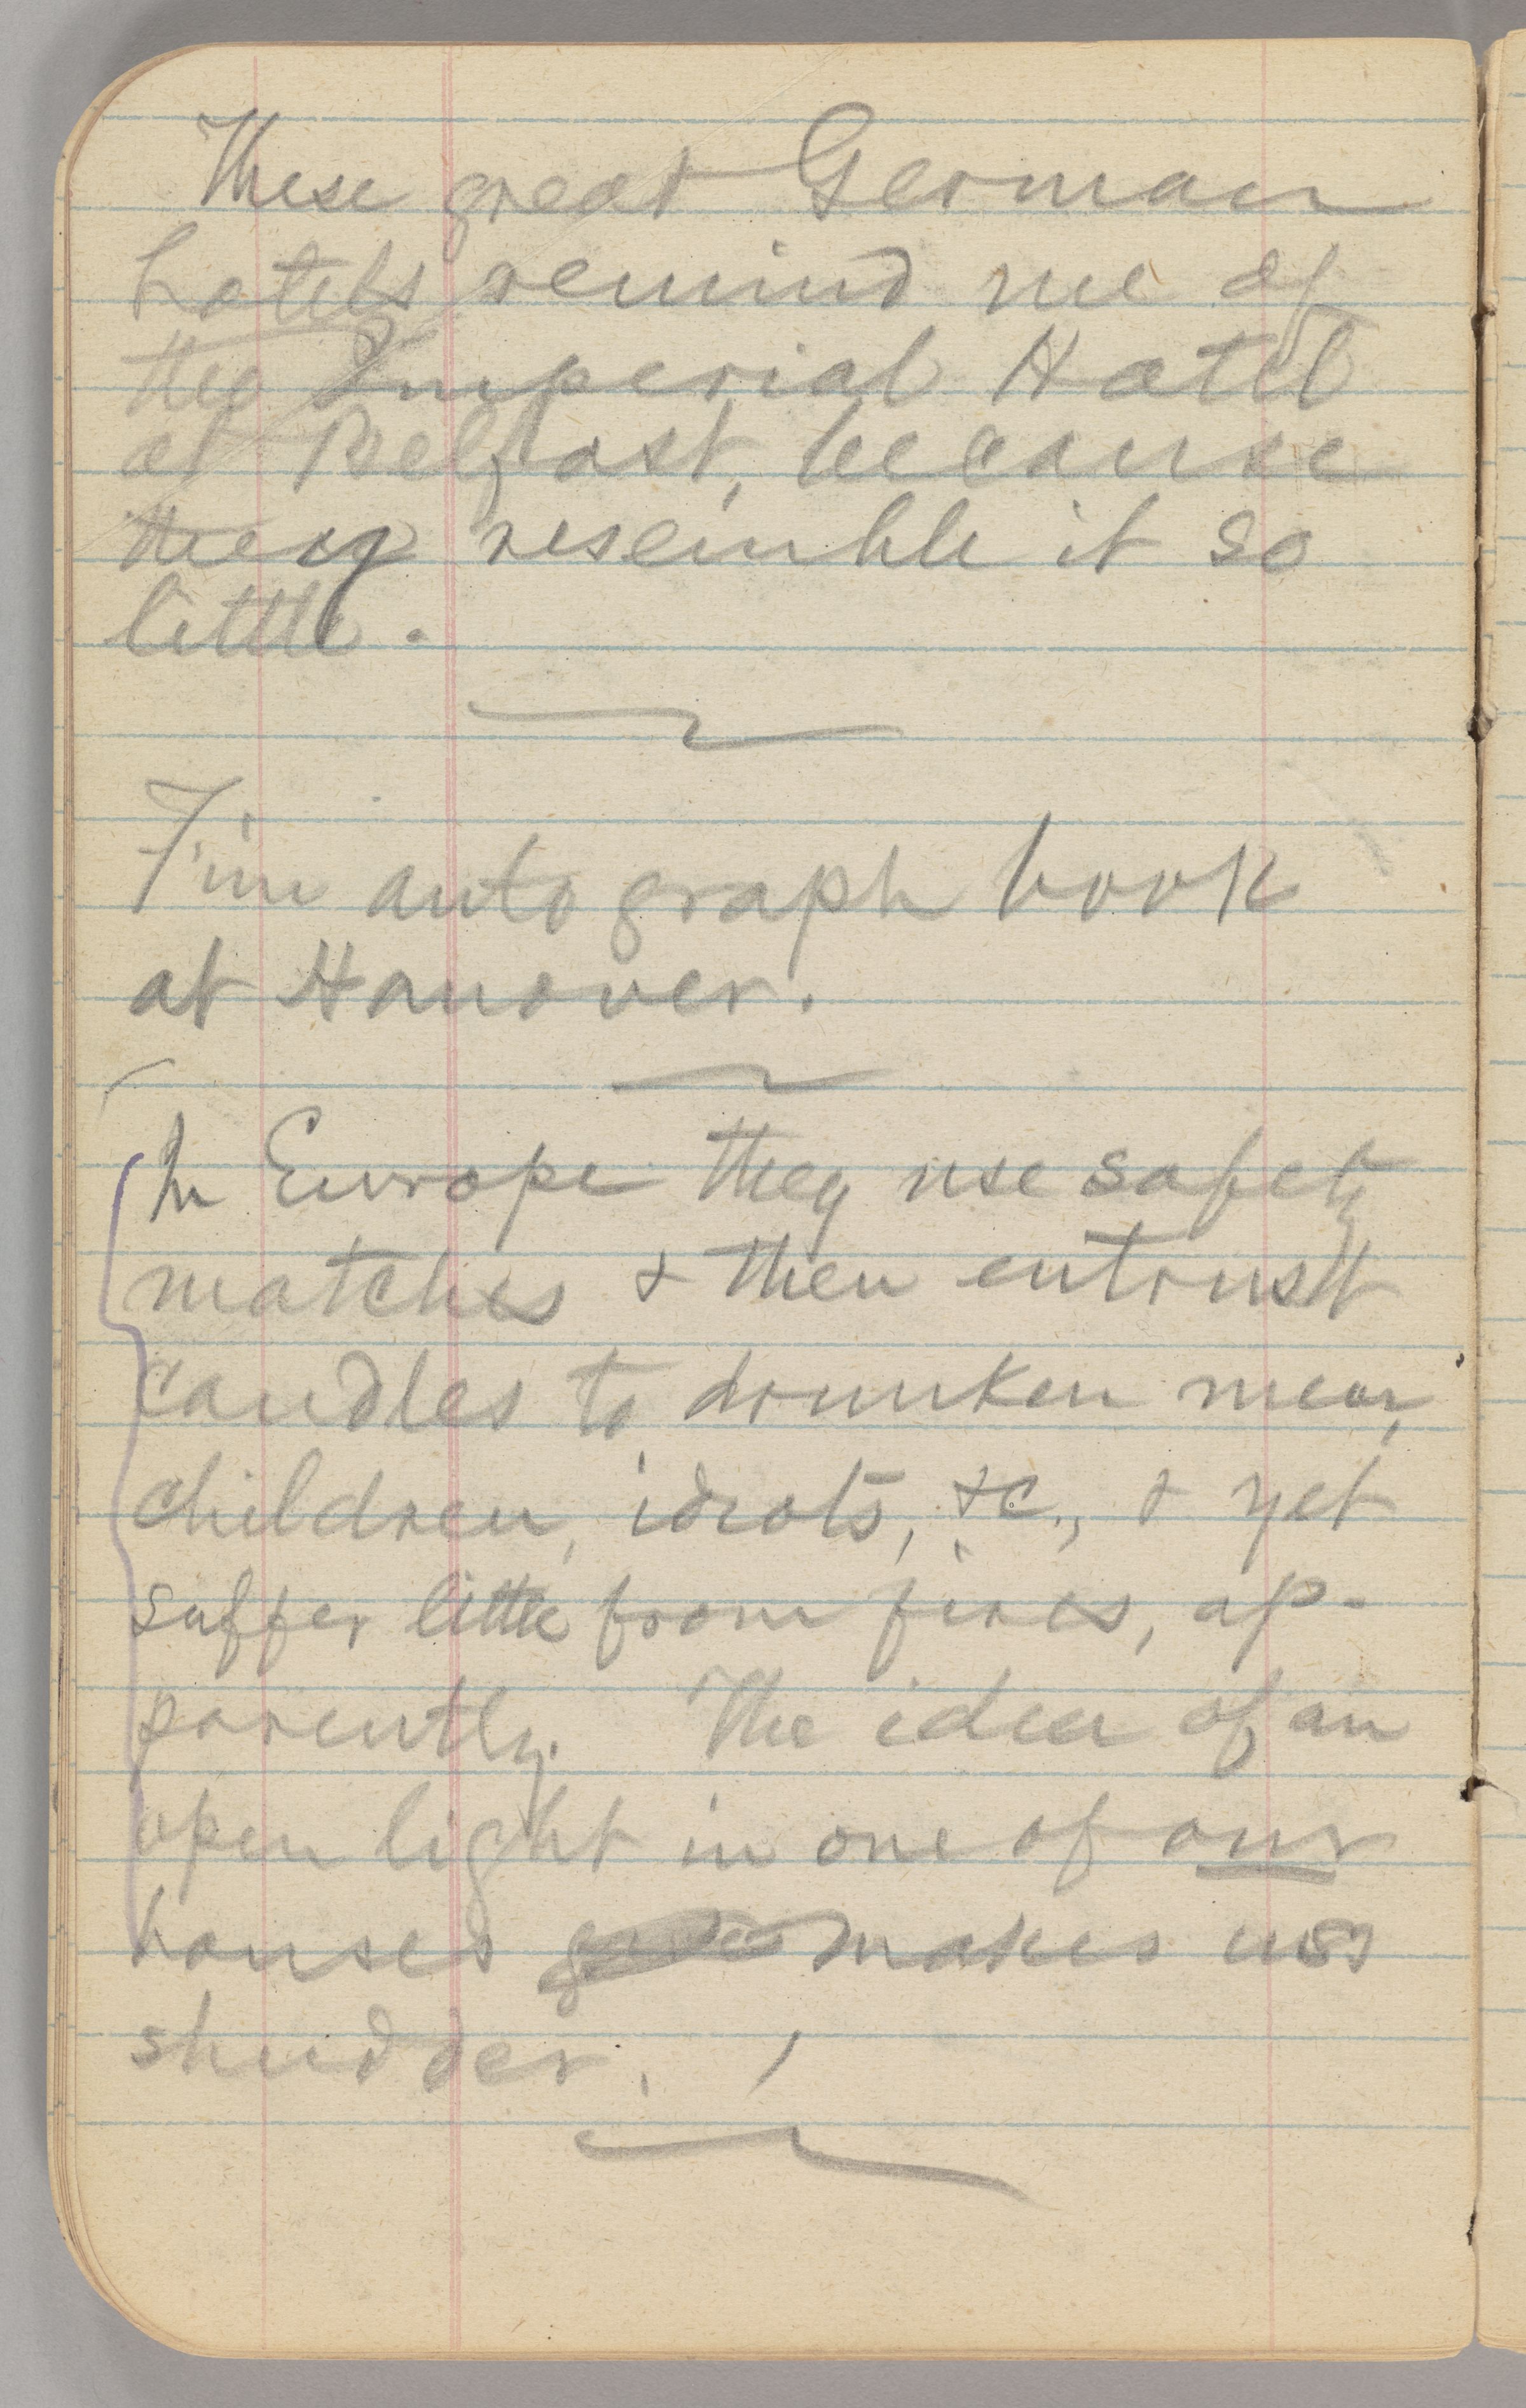 These great German
hotels remind me of
the Imperial Hotel
at Belfast, because
they resemble it so
little.
autograph book
at Hanover.
In Europe they use safety
matches & then entrust
candles to drunken men,
children, idiots, &c., & yet
suffer little from fires, ap-
parently. The idea of an
open light in one of our
houses makes us
shudder.